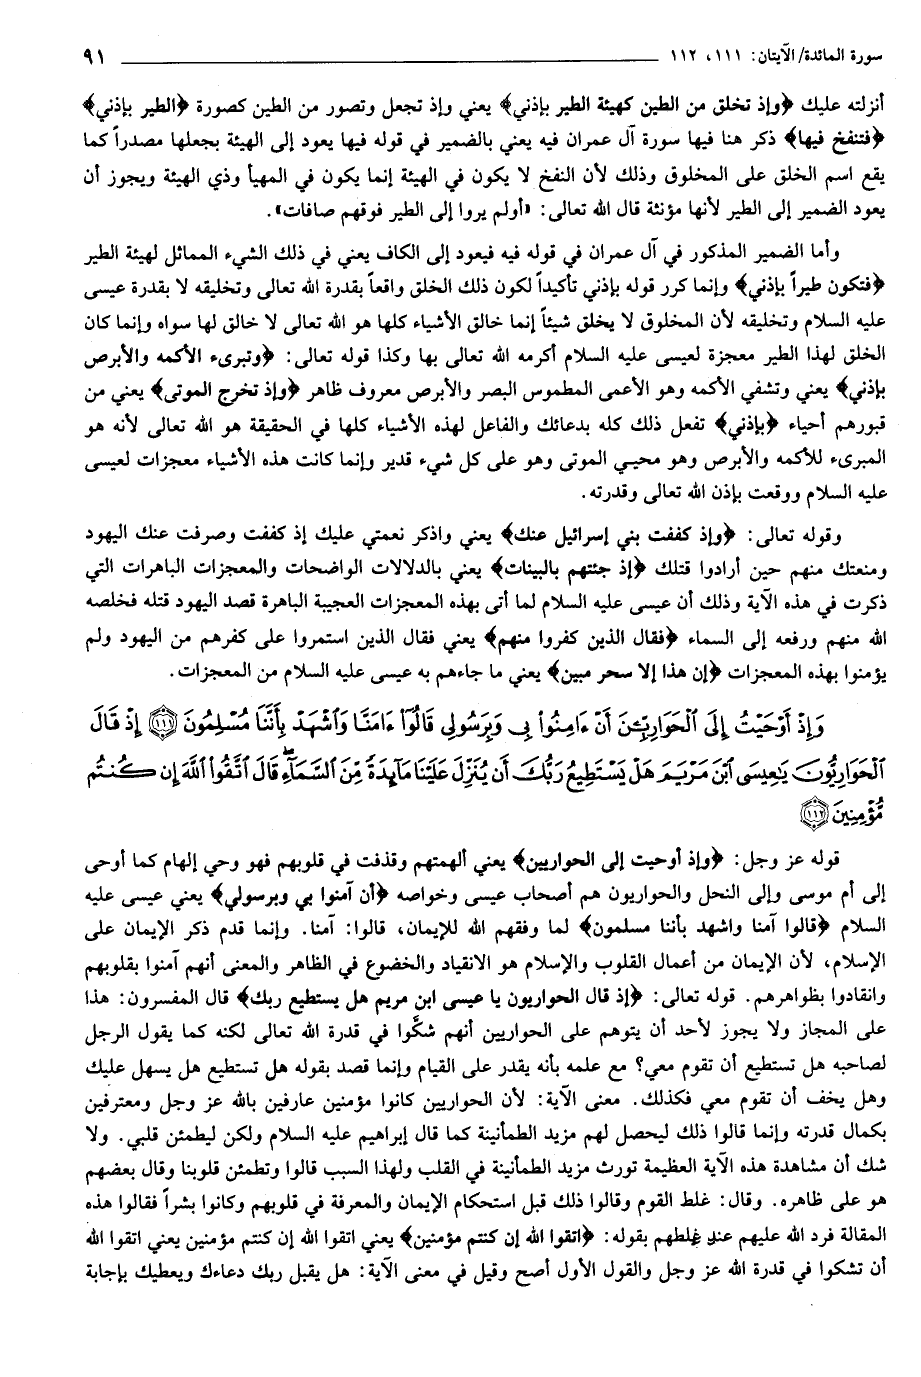 سورة المائدة/ الآيتان: ١١١، ١١٢ ٩١
أنزلته عليك ﴿وإذ تخلق من الطين كهيئة الطير بإذني﴾ يعني وإذ تجعل وتصور من الطين كصورة ﴿الطير بإذني﴾
﴿فتنفخ فيها﴾ ذكر هنا فيها سورة آل عمران فيه يعني بالضمير في قوله فيها يعود إلى الهيئة بجعلها مصدراً كما
يقع اسم الخلق على المخلوق وذلك لأن النفخ لا يكون في الهيئة إنما يكون في المهيأ وذي الهيئة ويجوز أن
يعود الضمير إلى الطير لأنها مؤنثة قال الله تعالى: «أولم يروا إلى الطير فوقهم صافات».
وأما الضمير المذكور في آل عمران في قوله فيه فيعود إلى الكاف يعني في ذلك الشيء المماثل لهيئة الطير
﴿فتكون طيراً بإذني﴾ وإنما كرر قوله بإذني تأكيداً لكون ذلك الخلق واقعاً بقدرة الله تعالى وتخليقه لا بقدرة عيسى
عليه السلام وتخليقه لأن المخلوق لا يخلق شيئاً إنما خالق الأشياء كلها هو الله تعالى لا خالق لها سواه وإنما كان
الخلق لهذا الطير معجزة لعيسى عليه السلام أكرمه الله تعالى بها وكذا قوله تعالى: ﴿وتبرىء الأكمه والأبرص
بإذني﴾ يعني وتشفي الأكمه وهو الأعمى المطموس البصر والأبرص معروف ظاهر ﴿وإذ تخرج الموتى﴾ يعني من
قبورهم أحياء ﴿بإذني﴾ تفعل ذلك كله بدعائك والفاعل لهذه الأشياء كلها في الحقيقة هو الله تعالى لأنه هو
المبرىء للأكمه والأبرص وهو محيي الموتى وهو على كل شيء قدير وإنما كانت هذه الأشياء معجزات لعيسى
عليه السلام ووقعت بإذن الله تعالى وقدرته.
وقوله تعالى: ﴿وإذ كففت بني إسرائيل عنك﴾ يعني واذكر نعمتي عليك إذ كففت وصرفت عنك اليهود
ومنعتك منهم حين أرادوا قتلك ﴿إذ جئتهم بالبينات﴾ يعني بالدلالات الواضحات والمعجزات الباهرات التي
ذكرت في هذه الآية وذلك أن عيسى عليه السلام لما أتى بهذه المعجزات العجيبة الباهرة قصد اليهود قتله فخلصه
الله منهم ورفعه إلى السماء ﴿فقال الذين كفروا منهم﴾ يعني فقال الذين استمروا على كفرهم من اليهود ولم
يؤمنوا بهذه المعجزات ﴿إن هذا إلا سحر مبين﴾ يعني ما جاءهم به عيسى عليه السلام من المعجزات.
وَإِذْ أَوْحَيْتُ إِلَى ٱلْحَوَارِيِّـۧنَ أَنْ ءَامِنُوا۟ بِى وَبِرَسُولِى قَالُوٓا۟ ءَامَنَّا وَٱشْهَدْ بِأَنَّنَا مُسْلِمُونَ ﴿١١١﴾ إِذْ قَالَ
ٱلْحَوَارِيُّونَ يَٰعِيسَى ٱبْنَ مَرْيَمَ هَلْ يَسْتَطِيعُ رَبُّكَ أَن يُنَزِّلَ عَلَيْنَا مَآئِدَةً مِّنَ ٱلسَّمَآءِ ۖ قَالَ ٱتَّقُوا۟ ٱللَّهَ إِن كُنتُم
مُّؤْمِنِينَ ﴿١١٢﴾
قوله عز وجل: ﴿وإذ أوحيت إلى الحواريين﴾ يعني ألهمتهم وقذفت في قلوبهم فهو وحي إلهام كما أوحى
إلى أم موسى وإلى النحل والحواريون هم أصحاب عيسى وخواصه ﴿أن آمنوا بي وبرسولي﴾ يعني عيسى عليه
السلام ﴿قالوا آمنا واشهد بأننا مسلمون﴾ لما وفقهم الله للإيمان، قالوا: آمنا. وإنما قدم ذكر الإيمان على
الإسلام، لأن الإيمان من أعمال القلوب والإسلام هو الانقياد والخضوع في الظاهر والمعنى أنهم آمنوا بقلوبهم
وانقادوا بظواهرهم. قوله تعالى: ﴿إذ قال الحواريون يا عيسى ابن مريم هل يستطيع ربك﴾ قال المفسرون: هذا
على المجاز ولا يجوز لأحد أن يتوهم على الحواريين أنهم شكُّوا في قدرة الله تعالى لكنه كما يقول الرجل
لصاحبه هل تستطيع أن تقوم معي؟ مع علمه بأنه يقدر على القيام وإنما قصد بقوله هل تستطيع هل يسهل عليك
وهل يخف أن تقوم معي فكذلك. معنى الآية: لأن الحواريين كانوا مؤمنين عارفين بالله عز وجل ومعترفين
بكمال قدرته وإنما قالوا ذلك ليحصل لهم مزيد الطمأنينة كما قال إبراهيم عليه السلام ولكن ليطمئن قلبي. ولا
شك أن مشاهدة هذه الآية العظيمة تورث مزيد الطمأنينة في القلب ولهذا السبب قالوا وتطمئن قلوبنا وقال بعضهم
هو على ظاهره. وقال: غلط القوم وقالوا ذلك قبل استحكام الإيمان والمعرفة في قلوبهم وكانوا بشراً فقالوا هذه
المقالة فرد الله عليهم عند غلطهم بقوله: ﴿اتقوا الله إن كنتم مؤمنين﴾ يعني اتقوا الله إن كنتم مؤمنين يعني اتقوا الله
أن تشكوا في قدرة الله عز وجل والقول الأول أصح وقيل في معنى الآية: هل يقبل ربك دعاءك ويعطيك بإجابة